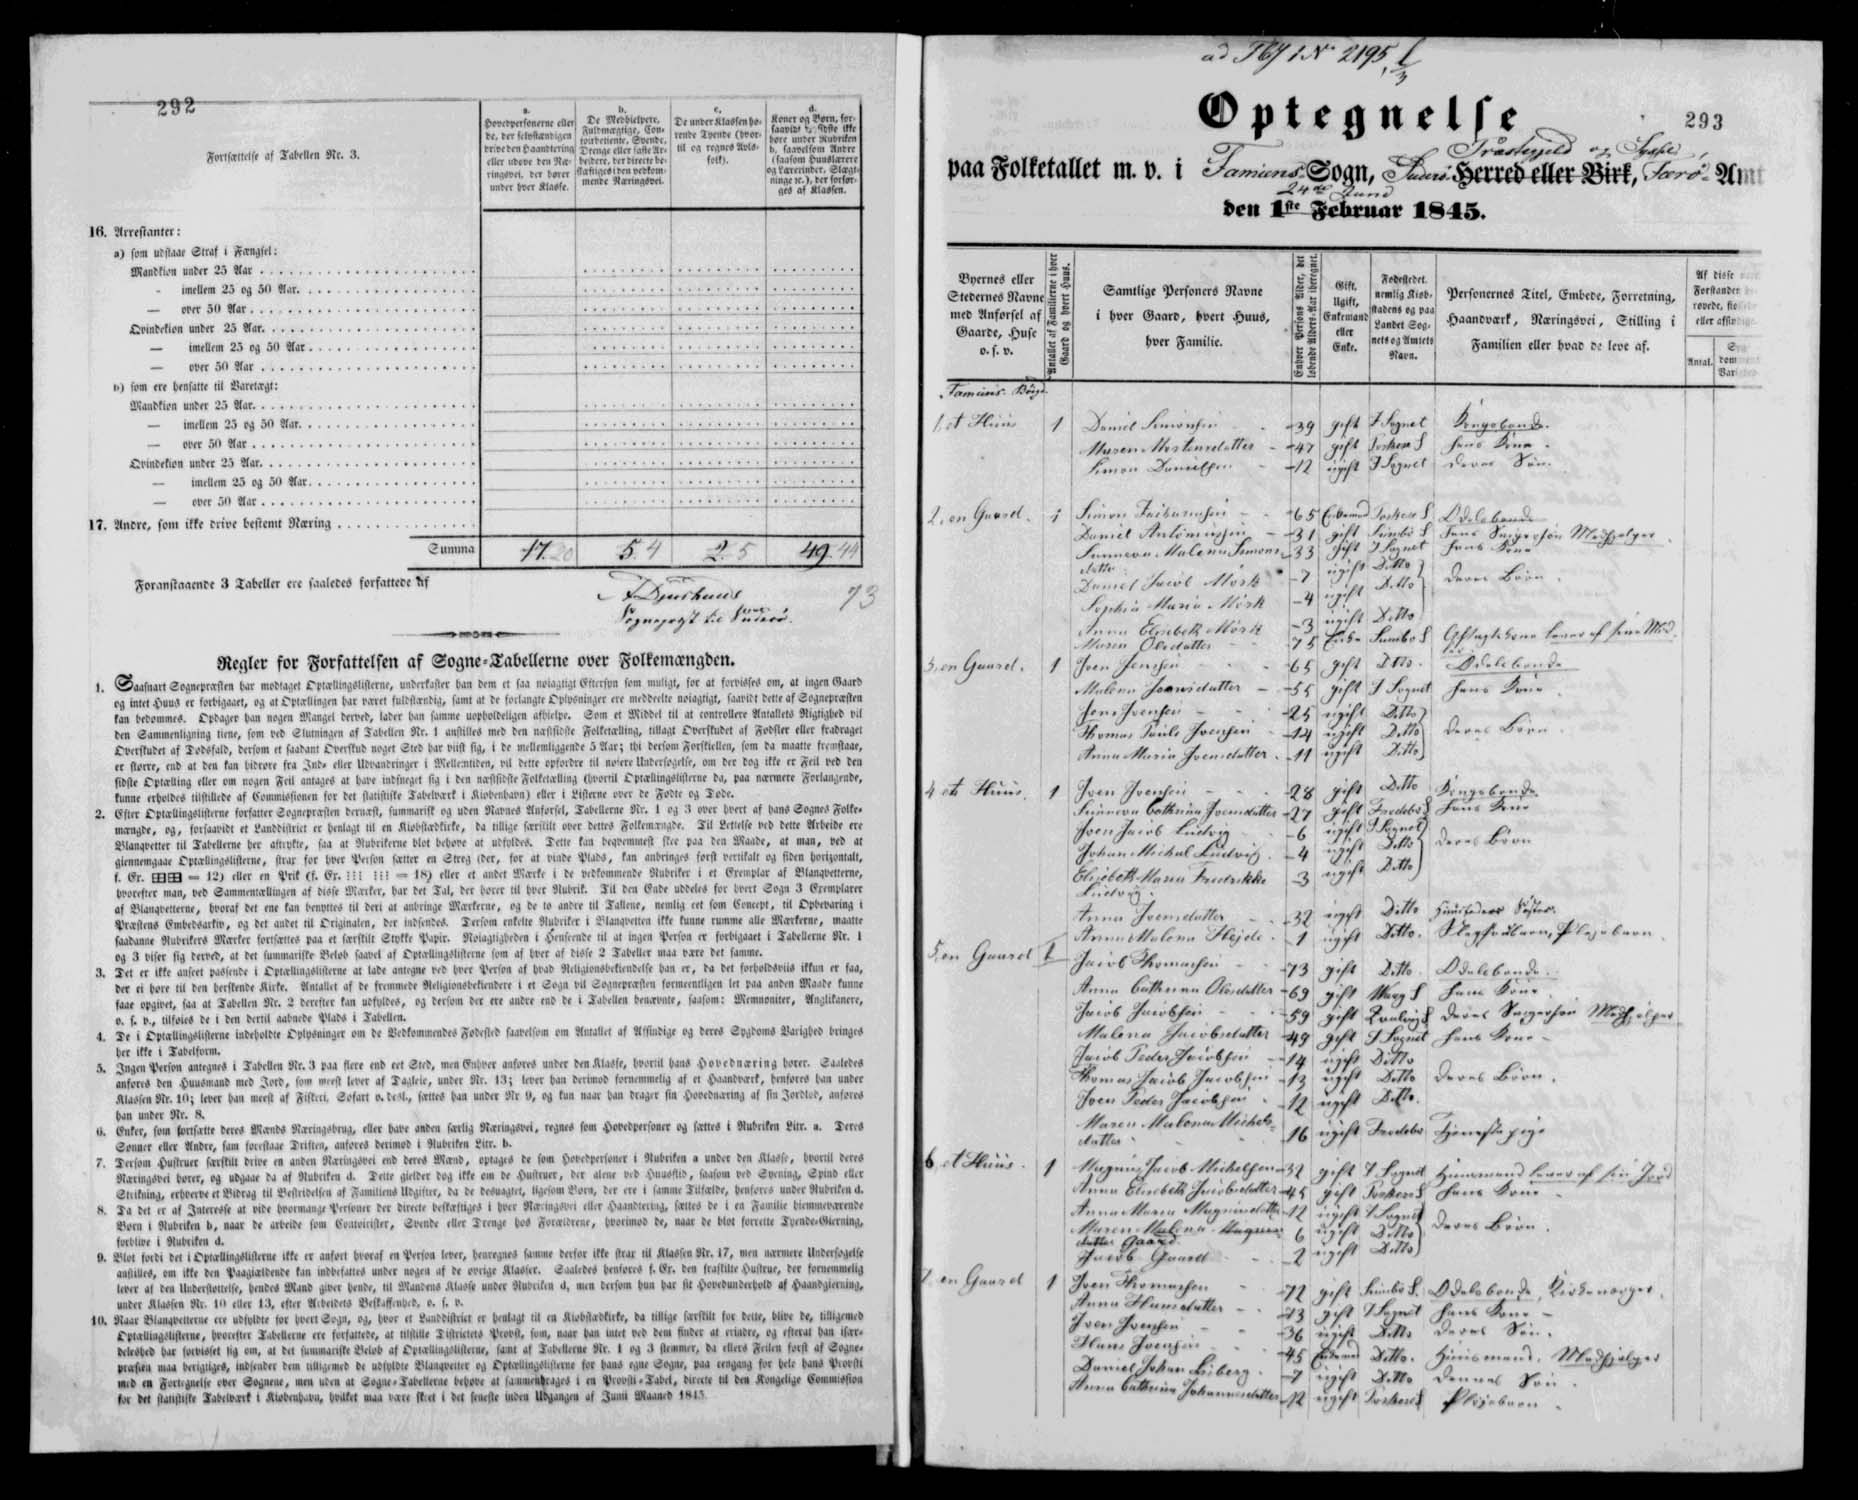 292
Fortsættelse af Tabellen Nr. 3.
a.
Hovedpersonerne eller
de, der selvstændigen
drive den Haandtering
eller udøve den Næ-
ringsvei, der hører
under hver Klasse.
b.
De Medhielpere,
Fuldmægtige, Con-
toirbetiente, Svende,
Drenge eller faste Ar-
beidere, der directe be-
skæftiges i den vedkom-
mende Næringsvei.
c.
De under Klassen hø-
rende Tyende (hvor-
til og regnes Avls-
folk).
d.
Koner og Børn, for-
saavidt sidste ikke
høre under Rubriken
b, saavelsom Andre
(saasom Huuslærere
og Lærerinder, Slægt-
ninge ec.), der forsør-
ges af Klassen.
16. Arrestanter:
a) som udstaae Straf i Fængsel:
Mandkiøn under 25 Aar
- imellem 25 og 50 Aar.
— over 50 Aar
Qvindekiøn under 25 Aar.
— imellem 25 og 50 Aar
— over 50 Aar
b) som ere hensatte til Varetægt:
Mandkiøn under 25 Aar.
— imellem 25 og 50 Aar.
— over 50 Aar
Qvindekiøn under 25 Aar.
— imellem 25 og 50 Aar.
— over 50 Aar
17. Andre, som ikke drive bestemt Næring
Summa 17. 20 5. 4 2. 5 49. 44
Foranstaaende 3 Tabeller ere saaledes forfattede af
73
Sognefogt til Suderø.
Regler for Forfattelsen af Sogne-Tabellerne over Folkemængden.
1. Saasnart Sognepræsten har modtaget Optællingslisterne, underkaster han dem et saa nøiagtigt Eftersyn som muligt, for at forvisses om, at ingen Gaard
og intet Huus er forbigaaet, og at Optællingen har været fuldstændig, samt at de forlangte Oplysninger ere meddeelte nøiagtigt, saavidt dette af Sognepræsten
kan bedømmes. Opdager han nogen Mangel derved, lader han samme uopholdeligen afhielpe. Som et Middel til at controllere Antallets Rigtighed vil
den Sammenligning tiene, som ved Slutningen af Tabellen Nr. 1 anstilles med den næstsidste Folketælling, tillagt Overskudet af Fødsler eller fradraget
Overskudet af Dødsfald, dersom et saadant Overskud noget Sted har viist sig, i de mellemliggende 5 Aar; thi dersom Forskiellen, som da maatte fremstaae,
er større, end at den kan hidrøre fra Ind- eller Udvandringer i Mellemtiden, vil dette opfordre til nøiere Undersøgelse, om der dog ikke er Feil ved den
sidste Optælling eller om nogen Feil antages at have indsneget sig i den næstsidste Folketælling (hvortil Optællingslisterne da, paa nærmere Forlangende,
kunne erholdes tilstillede af Commissionen for det statistiske Tabelværk i Kiøbenhavn) eller i Listerne over de Fødte og Døde.
2. Efter Optællingslisterne forfatter Sognepræsten dernæst, summarisk og uden Navnes Anførsel, Tabellerne Nr. 1 og 3 over hvert af hans Sognes Folke-
mængde, og, forsaavidt et Landdistrict er henlagt til en Kiøbstædkirke, da tillige særskilt over dettes Folkemængde. Til Lettelse ved dette Arbeide ere
Blanqvetter til Tabellerne her aftrykte, saa at Rubrikerne blot behøve at udfyldes. Dette kan beqvemmest skee paa den Maade, at man, ved at
giennemgaae Optællingslisterne, strax for hver Person sætter en Streg (der, for at vinde Plads, kan anbringes først vertikalt og siden horizontalt,
f. Ex. ⊞⊞ = 12) eller en Prik (f. Ex. ⁝⁝⁝ ⁝⁝⁝ = 18) eller et andet Mærke i de vedkommende Rubriker i et Exemplar af Blanqvetterne,
hvorefter man, ved Sammentællingen af disse Mærker, har det Tal, der hører til hver Rubrik. Til den Ende uddeles for hvert Sogn 3 Exemplarer
af Blanqvetterne, hvoraf det ene kan benyttes til deri at anbringe Mærkerne, og de to andre til Tallene, nemlig eet som Concept, til Opbevaring i
Præstens Embedsarkiv, og det andet til Originalen, der indsendes. Dersom enkelte Rubriker i Blanqvetten ikke kunne rumme alle Mærkerne, maatte
saadanne Rubrikers Mærker fortsættes paa et særskilt Stykke Papir. Nøiagtigheden i Henseende til at ingen Person er forbigaaet i Tabellerne Nr. 1
og 3 viser sig derved, at det summariske Beløb saavel af Optællingslisterne som af hver af disse 2 Tabeller maa være det samme.
3. Det er ikke anseet passende i Optællingslisterne at lade antegne ved hver Person af hvad Religionsbekiendelse han er, da det forholdsviis ikkun er faa,
der ei høre til den herskende Kirke. Antallet af de fremmede Religionsbekiendere i et Sogn vil Sognepræsten formeentligen let paa anden Maade kunne
faae opgivet, saa at Tabellen Nr. 2 derefter kan udfyldes, og dersom der ere andre end de i Tabellen benævnte, saasom: Memnoniter, Anglikanere,
o. s. v., tilføies de i den dertil aabnede Plads i Tabellen.
4. De i Optællingslisterne indeholdte Oplysninger om de Vedkommendes Fødested saavelsom om Antallet af Afsindige og deres Sygdoms Varighed bringes
her ikke i Tabelform.
5. Ingen Person antegnes i Tabellen Nr. 3 paa flere end eet Sted, men Enhver anføres under den Klasse, hvortil hans Hovednæring hører. Saaledes
anføres den Huusmand med Jord, som meest lever af Dagleie, under Nr. 13; lever han derimod fornemmelig af et Haandværk, henføres han under
Klassen Nr. 10; lever han meest af Fiskeri, Søfart o. desl., sættes han under Nr 9, og kun naar han drager sin Hovednæring af sin Jordlod, anføres
han under Nr. 8.
6. Enker, som fortsætte deres Mænds Næringsbrug, eller have anden særlig Næringsvei, regnes som Hovedpersoner og sættes i Rubriken Litr. a. Deres
Sønner eller Andre, som forestaae Driften, anføres derimod i Rubriken Litr. b.
7. Dersom Hustruer særskilt drive en anden Næringsvei end deres Mænd, optages de som Hovedpersoner i Rubriken a under den Klasse, hvortil deres
Næringsvei hører, og udgaae da af Rubriken d. Dette gielder dog ikke om de Hustruer, der alene ved Huusflid, saasom ved Syening, Spind eller
Strikning, erhverve et Bidrag til Bestridelsen af Familiens Udgifter, da de desuagtet, ligesom Børn, der ere i samme Tilfælde, henføres under Rubriken d.
8. Da det er af Interesse at vide hvormange Personer der directe beskæftiges i hver Næringsvei eller Haandtering, sættes de i en Familie hiemmeværende
Børn i Rubriken b, naar de arbeide som Contoirister, Svende eller Drenge hos Forældrene, hvorimod de, naar de blot forrette Tyende-Gierning,
forblive i Rubriken d.
9. Blot fordi det i Optællingslisterne ikke er anført hvoraf en Person lever, henregnes samme derfor ikke strax til Klassen Nr. 17, men nærmere Undersøgelse
anstilles, om ikke den Paagiældende kan indbefattes under nogen af de øvrige Klasser. Saaledes henføres f. Ex. den fraskilte Hustrue, der fornemmelig
lever af den Understøttelse, hendes Mand giver hende, til Mandens Klasse under Rubriken d, men dersom hun har sit Hovedunderhold af Haandgierning,
under Klassen Nr. 10 eller 13, efter Arbeidets Beskaffenhed, o. s. v.
10. Naar Blanqvetterne ere udfyldte for hvert Sogn, og, hvor et Landdistrict er henlagt til en Kiøbstædkirke, da tillige særskilt for dette, blive de, tilligemed
Optællingslisterne, hvorefter Tabellerne ere forfattede, at tilstille Districtets Provst, som, naar han intet ved dem finder at erindre, og efterat han især-
deleshed har forvisset sig om, at det summariske Beløb af Optællingslisterne, samt af Tabellerne Nr. 1 og 3 stemmer, da ellers Feilen først af Sogne-
præsten maa berigtiges, indsender dem tilligemed de udfyldte Blanqvetter og Optællingslisterne for hans egne Sogne, paa eengang for hele hans Provsti
med en Fortegnelse over Sognene, men uden at Sogne-Tabellerne behøve at sammendrages i en Provsti-Tabel, directe til den Kongelige Commission
for det statistiske Tabelværk i Kiøbenhavn, hvilket maa være skeet i det seneste inden Udgangen af Junii Maaned 1845.
ad 2195
Optegnelse
293
Præstegjeld og Syssel,
paa Folketallet m. v. i Famiens Sogn, Suderø Herred eller Birk, Færø Amt
24de
den 1ste Februar 1845.
Byernes eller
Stedernes Navne
med Anførsel af
Gaarde, Huse
o. s. v.
Antallet af Familierne i hver
Gaard og hvert Huus.
Samtlige Personers Navne
i hver Gaard, hvert Huus,
hver Familie.
Enhver Persons Alder, det
løbende Alders-Aar iberegnet.
Gift,
Ugift,
Enkemand
eller
Enke.
Fødestedet,
nemlig Kiøb-
stadens og paa
Landet Sog-
nets og Amtets
Navn.
Personernes Titel, Embede, Forretning,
Haandværk, Næringsvei, Stilling i
Familien eller hvad de leve af.
Af disse
Forstanden
eller
Antal.
Famiens Bøigd.
1, et Huus 1 Daniel Simonsen 39 gift I Sognet Kongsbonde.
Maren Mortensdatter 47 gift Porkere S hans Kone.
Simon Danielsen 12 ugift I Sognet deres Søn.
2, en Gaard. 1 Simon 65 Enkemand Porkere S Odelsbonde
Daniel 31 gift Sumbø S hans Svigersøn Medhjelper
Sunneva Malena Simons 33 gift I Sognet hans Kone
datter
Daniel Jacob Mørk 7 ugift Ditto
Sophia Maria Mørk 4 ugift Ditto deres Børn.
Anna Elisebeth Mørk 3 ugift Ditto
Maren Olesdatter 75 Enke Sumbø S
3, en Gaard. 1 Joen Jensen 65 gift Ditto. Odelsbonde
Malena Joensdatter 55 gift I Sognet hans Kone
Jens Joensen 25 ugift Ditto
Thomas Pouls Joensen 14 ugift Ditto deres Børn.
Anna Maria Joensdatter 11 ugift Ditto
4 et Huus. 1 Joen Joensen 28 gift Ditto Kongsbonde
Sunneva Cathrina Joensdatter 27 gift Frodebø S hans Kone
Joen Jacob Ludvig 6 ugift I Sognet
Johan Michal Ludvig 4 ugift Ditto deres Børn
Elisebeth Maria Fredrikke 3 ugift Ditto
Ludvig.
Anna Joensdatter 32 ugift Ditto Huusfaders Søster.
Anna Malena 1 ugift Ditto. Plejebarn.
5, en Gaard 1 Jacob Thomasen 73 gift Ditto. Odelsbonde.
Anna Cathrina Olesdatter 69 gift Waag S hans Kone
Jacob Jacobsen 59 gift Qvalbø S deres Svigersøn Medhjelper
Malena Jacobsdatter 49 gift I Sognet hans Kone
Jacob Peder Jacobsen 14 ugift Ditto
Thomas Jacob Jacobsen 13 ugift Ditto deres Børn.
Joen Peder Jacobsen 12 ugift Ditto.
Maren Malena Michels- 16 ugift Frodebø Tjenestepige
datter
6 et Huus. 1 Magnus Jacob Michelsen 32 gift I Sognet Huusmand lever af sin Jord
Anna Elisebeth Jacobsdatter 45 gift Porkere S hans Kone
Anna Maria Magnusdatter 12 ugift I Sognet
Maren Malena Magnus 6 ugift Ditto deres Børn.
datter Gaard
Jacob Gaard 2 ugift Ditto
7, en Gaard 1 Joen Thomasen 72 gift Sumbø S. Odelsbonde, Kirkeværger.
Anna Hansdatter 73 gift I Sognet hans Kone
Joen Joensen 36 ugift Ditto deres Søn.
Hans Joensen 45 Enkemand Ditto. Huusmand, Medhjelper
Daniel Johan 7 ugift Ditto dennes Søn.
Anna Cathrina Johannesdatter 12 ugift Porkere S Plejebarn.